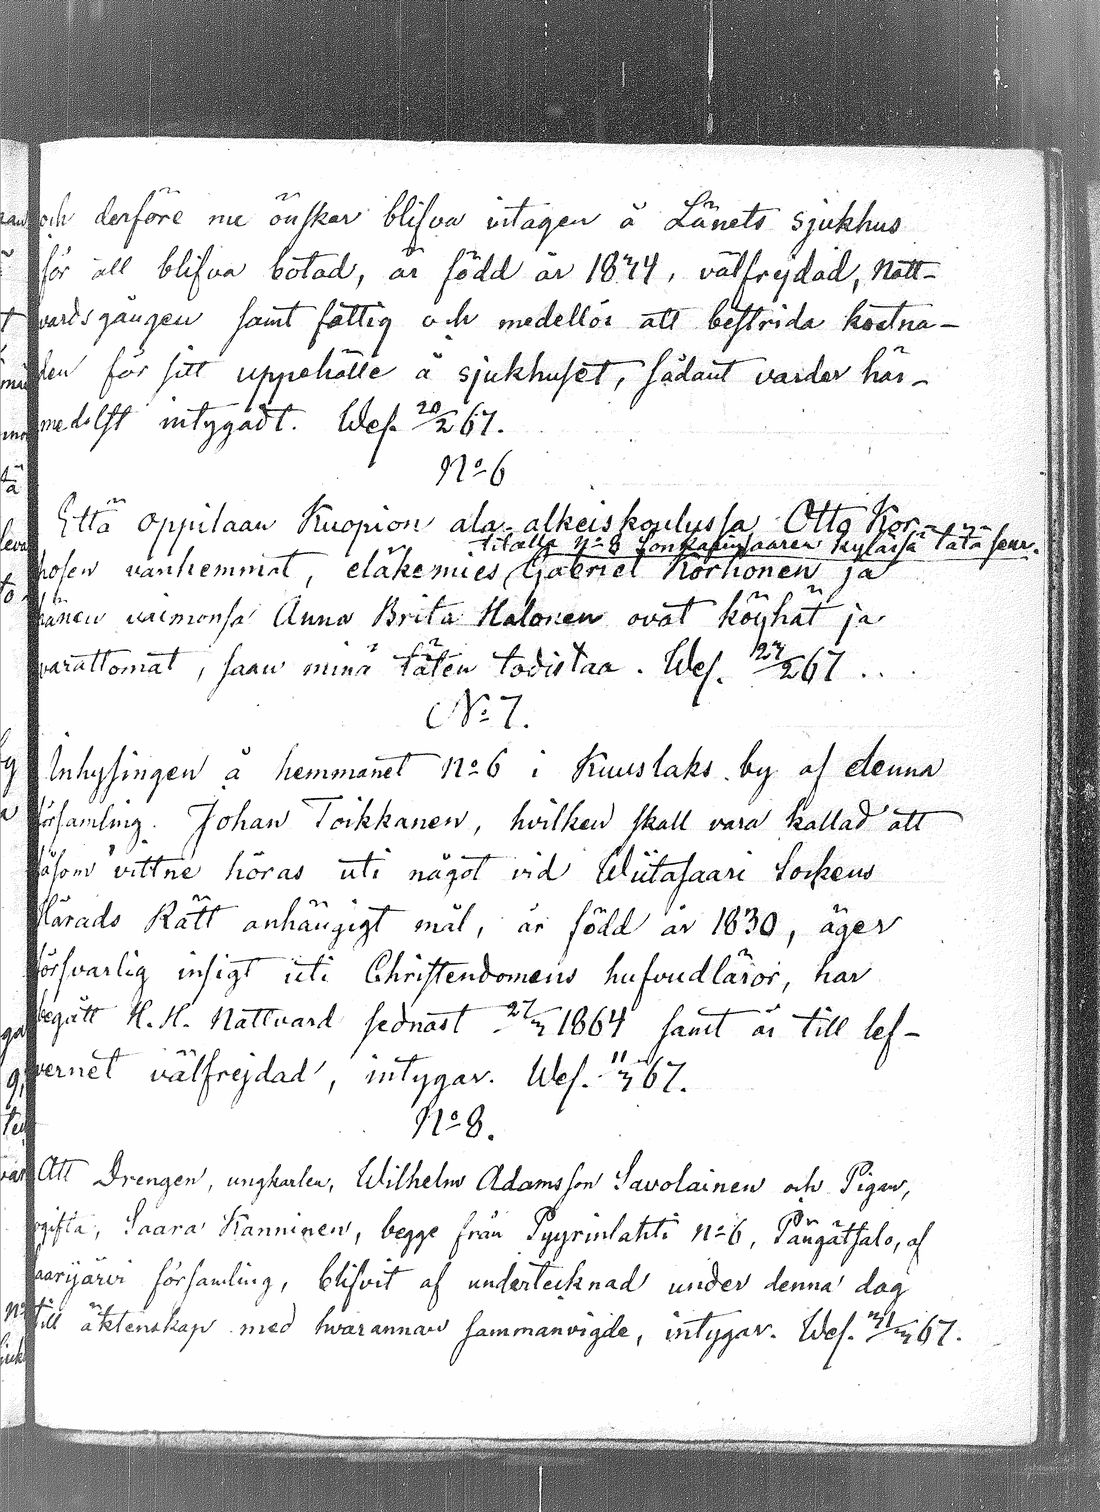 och derföre nu önskar blifva intagen å Länets sjukhus
för att blifva botad, är född år 1844, välfrejdad, Natt-
vardsgången samt fattig och medellös att bestrida kostna-
den för sitt uppehälle å sjukhuset, sådant varder här-
medelst intygadt. Wes. 20/2 67.
No 6
Että oppilaan Kuopion ala-alkeiskoulussa Otto Kor-
tilalla No 8 Sonkarinsaaren kylässä tätä seur.
hosen vanhemmat, eläkemies Gabriel Korhonen ja
hänen vaimonsa Anna Brita Halonen ovat köyhät ja
varattomat, saan minä täten todistaa. Wes. 27/2 67
No 7.
Inhysingen å hemmanet No 6 i Kuuslaks by af denna
församling. Johan Toikkanen, hvilken skall vara kallad att
såsom vittne höras uti något vid Wiitasaari Sockens
Härads Rätt anhängigt mål, är född år 1830, äger
försvarlig insigt uti Christendomens hufvudläror, har
begått H. H. Nattvard sednast 27/3 1864 samt är till lef-
vernet välfrejdad, intygar. Wes. 11/3 67.
No 8.
Att Drengen, ungkarlen, Wilhelm Adamsson Savolainen och Pigan,
ogifta, Saara Kanninen, begge från Pyyrinlahti No 6, Pängätsalo, af
Saarijärvi församling, blifvit af undertecknad under denna dag
till äktenskap med hvarannan sammanvigde, intygar. Wes. 31/3 67.